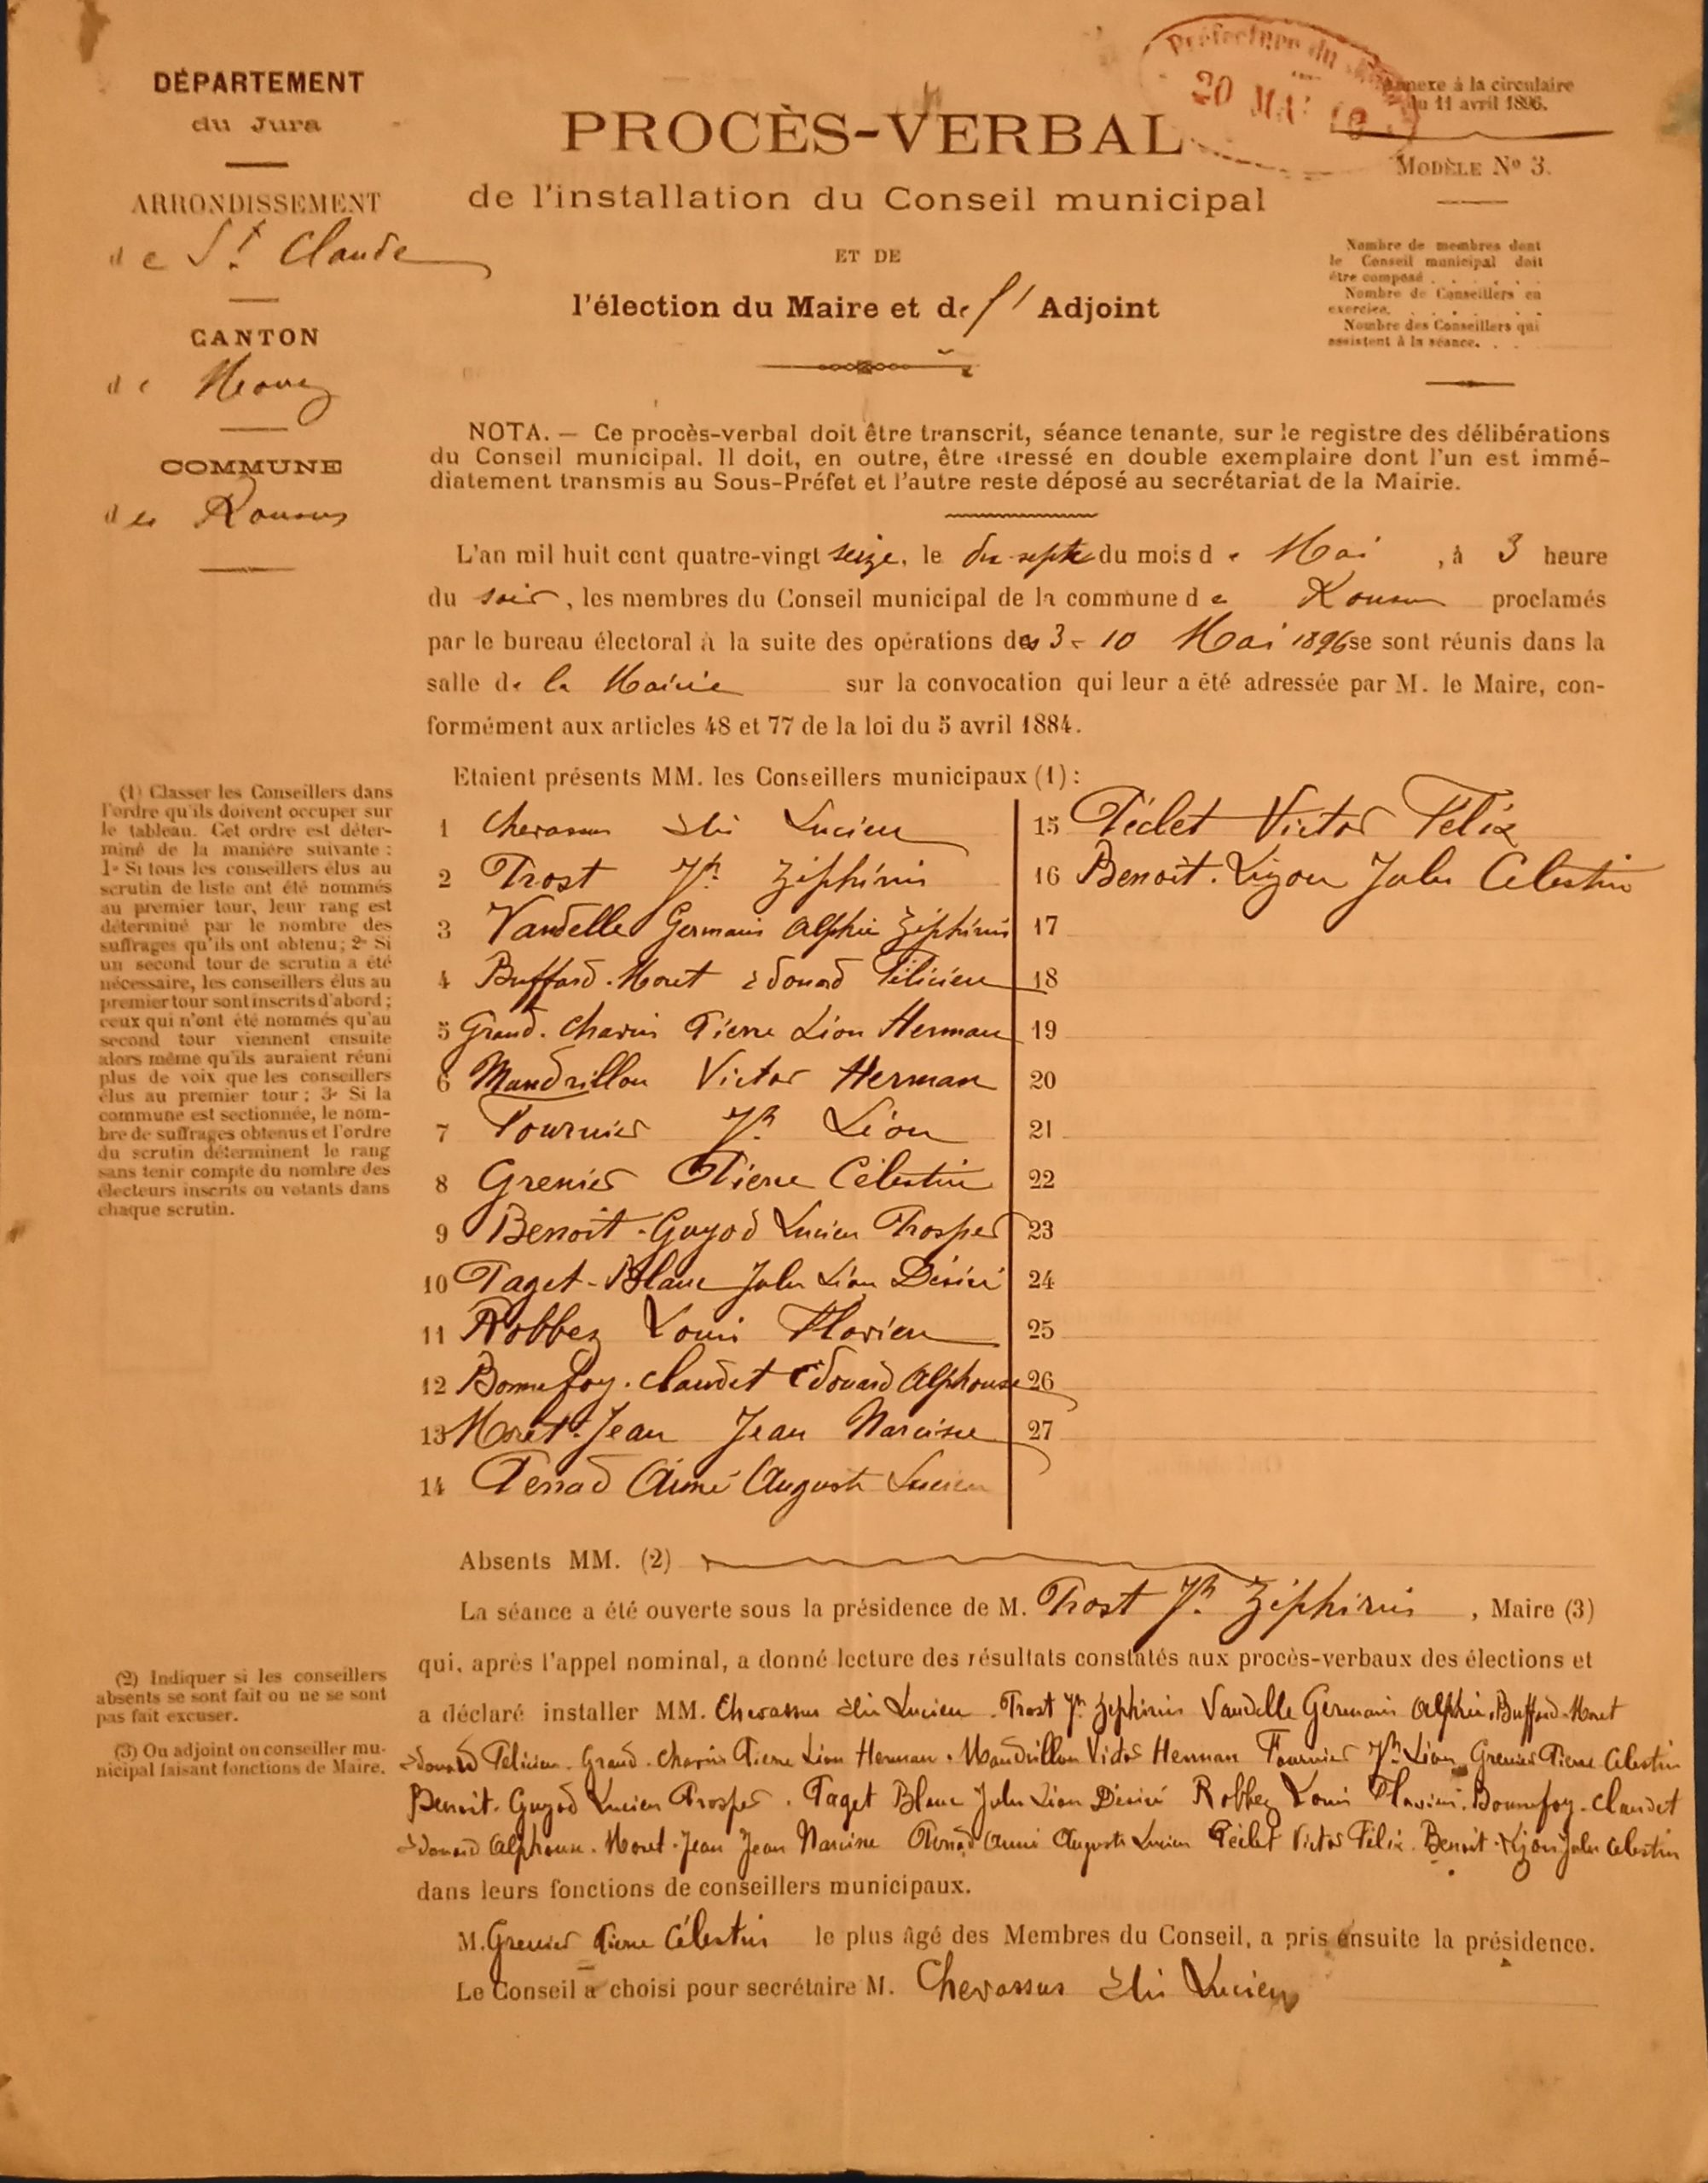 DÉPARTEMENT
du Jura
ARRONDISSEMENT
de St. Claude
CANTON
de Morez
COMMUNE
des Rousses
Préfecture du Jura
20 MAI
Annexe à la circulaire
du 11 avril 1896.
MODÈLE No 3.
PROCÈS-VERBAL
de l'installation du Conseil municipal
ET DE
l'élection du Maire et de l' Adjoint
Nombre de membres dont
le Conseil municipal doit
être composé . . . . . .
Nombre de Conseillers en
exercice. . . . . . .
Nombre des Conseillers qui
assistent à la séance. . .
NOTA. — Ce procès-verbal doit être transcrit, séance tenante, sur le registre des délibérations
du Conseil municipal. Il doit, en outre, être dressé en double exemplaire dont l'un est immé-
diatement transmis au Sous-Préfet et l'autre reste déposé au secrétariat de la Mairie.
L'an mil huit cent quatre-vingt seize, le dix-sept du mois de Mai , à 3 heure
du soir, les membres du Conseil municipal de la commune de Rousses proclamés
par le bureau électoral à la suite des opérations des 3 - 10 Mai 1896 se sont réunis dans la
salle de la Mairie sur la convocation qui leur a été adressée par M. le Maire, con-
formément aux articles 48 et 77 de la loi du 5 avril 1884.
Etaient présents MM. les Conseillers municipaux (1) :
1 Chevassus Elie Lucien
2 Prost Jh. Zéphirin
3 Vandelle Germain Alphée Zéphirin
4 Buffard-Moret Edouard Félicien
5 Grand-Chavin Pierre Léon Herman
6 Mandrillon Victor Herman
7 Fournier Jh Léon
8 Grenier Pierre Célestin
9 Benoit-Guyod Lucien Prosper
10 Paget-Blanc Jules Léon Désiré
11 Robbez Louis Florien
12 Bonnefoy-Claudet Edouard Alphonse
13 Moret-Jean Jean Narcisse
14 Perrad Aimé Auguste Lucien
15 Péclet Victor Félix
16 Benoit-Lizon Jules Célestin
17
18
19
20
21
22
23
24
25
26
27
(1) Classer les Conseillers dans
l'ordre qu'ils doivent occuper sur
le tableau. Cet ordre est déter-
miné de la manière suivante :
1o Si tous les conseillers élus au
scrutin de liste ont été nommés
au premier tour, leur rang est
déterminé par le nombre des
suffrages qu'ils ont obtenu ; 2o Si
un second tour de scrutin a été
nécessaire, les conseillers élus au
premier tour sont inscrits d'abord ;
ceux qui n'ont été nommés qu'au
second tour viennent ensuite
alors même qu'ils auraient réuni
plus de voix que les conseillers
élus au premier tour ; 3o Si la
commune est sectionnée, le nom-
bre de suffrages obtenus et l'ordre
du scrutin déterminent le rang
sans tenir compte du nombre des
électeurs inscrits ou votants dans
chaque scrutin.
Absents MM. (2)
La séance a été ouverte sous la présidence de M. Prost Jh. Zéphirin , Maire (3)
qui, après l'appel nominal, a donné lecture des résultats constatés aux procès-verbaux des élections et
a déclaré installer MM. Chevassus Elie Lucien - Prost Jh. Zéphirin Vandelle Germain Alphée, Buffard-Moret
Edouard Félicien - Grand-Chavin Pierre Léon Herman - Mandrillon Victor Herman Fournier Jh Léon Grenier Pierre Célestin
Benoit-Guyod Lucien Prosper - Paget Blanc Jules Léon Désiré Robbez Louis Florien. Bonnefoy-Claudet
Edouard Alphonse - Moret-Jean Jean Narcisse Perrad Aimé Auguste Lucien Péclet Victor Félix. Benoit-Lizon Jules Célestin
dans leurs fonctions de conseillers municipaux.
(2) Indiquer si les conseillers
absents se sont fait ou ne se sont
pas fait excuser.
(3) Ou adjoint ou conseiller mu-
nicipal faisant fonctions de Maire.
M. Grenier Pierre Célestin le plus âgé des Membres du Conseil, a pris ensuite la présidence.
Le Conseil a choisi pour secrétaire M. Chevassus Elie Lucien